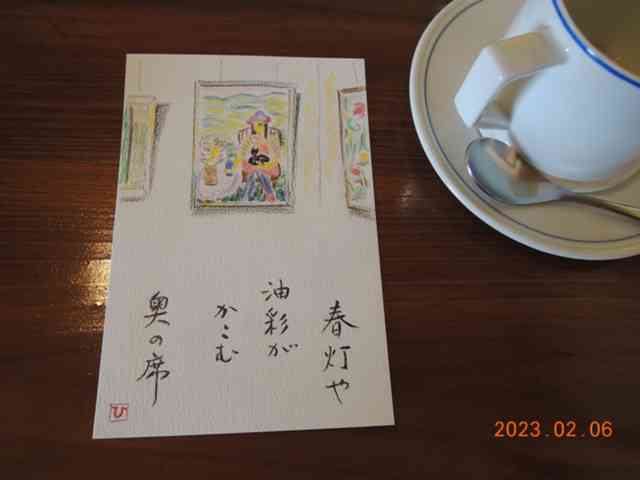 春灯や
油彩が
かこむ
奥の席
ひ
2023.02.06